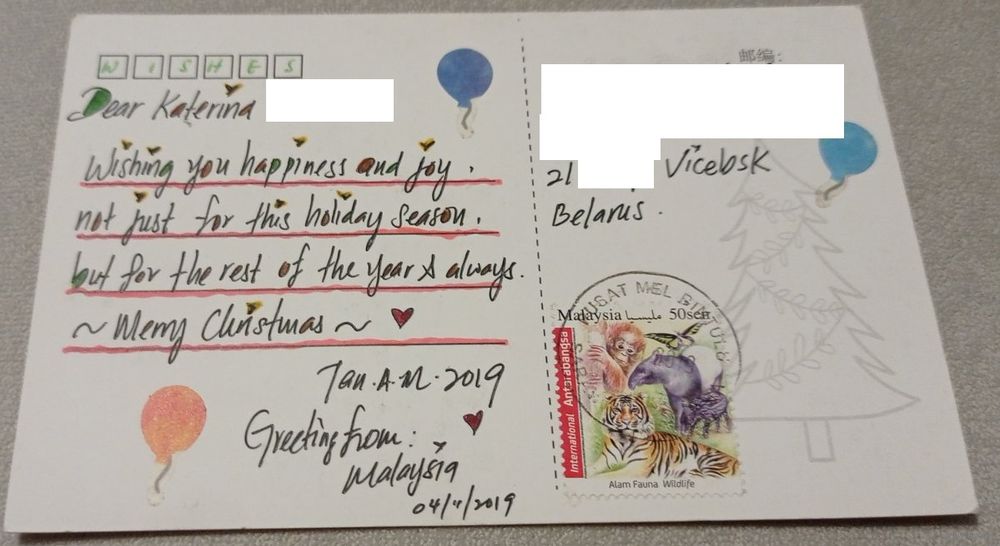 WISHES
Dear Katerina
Wishing you happiness and joy.
not just for this holiday season.
but for the rest of the year & always.
~ Merry Christmas ~
Tan.A.M.2019
Greeting from:
Malaysia
04/11/2019
邮编:
21
Vicebsk
Belarus.
PUSAT MEL BINTULU
Malaysia مليسيا 50sen
International Antarabangsa
Alam Fauna Wildlife